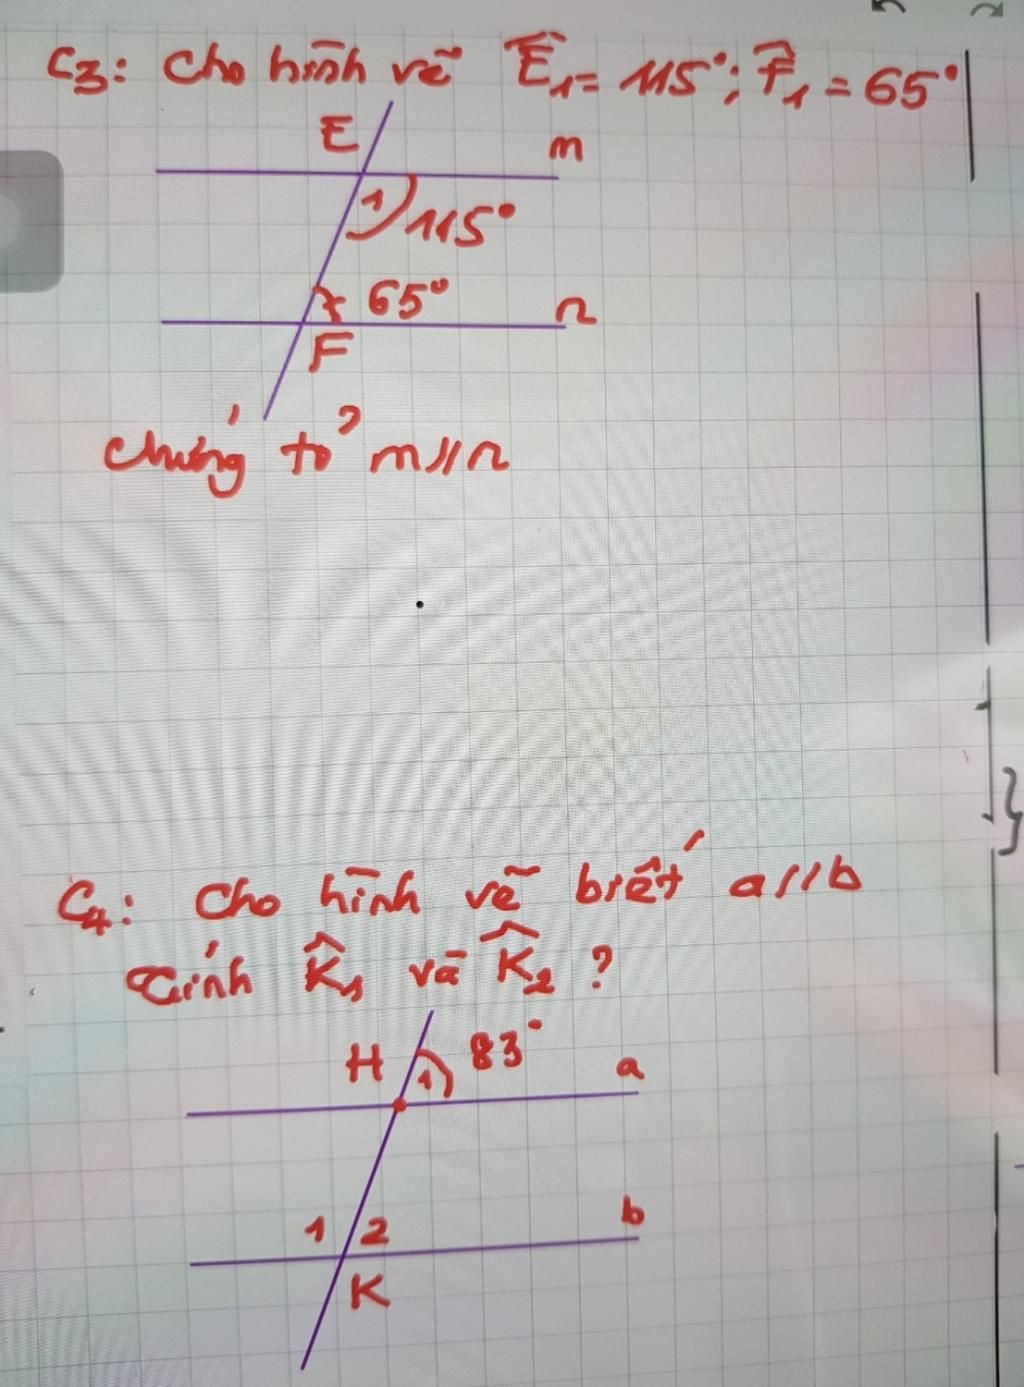 C3: Cho hình vẽ Ê1 = 115°; F̂1 = 65°
E
m
1
115°
65°
n
F
Chứng tỏ m//n
C4: Cho hình vẽ biết a//b
Tính K̂1 và K̂2 ?
H
1
83°
a
1 2
b
K